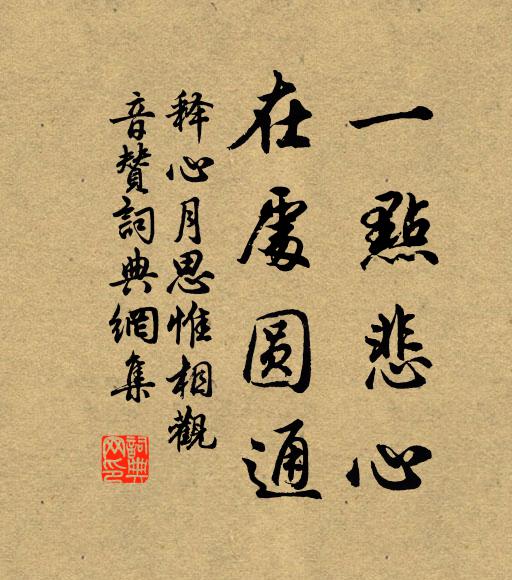 一點悲心
在處圓通
释心月思惟相觀
音賛詞典網集
詞典
网印